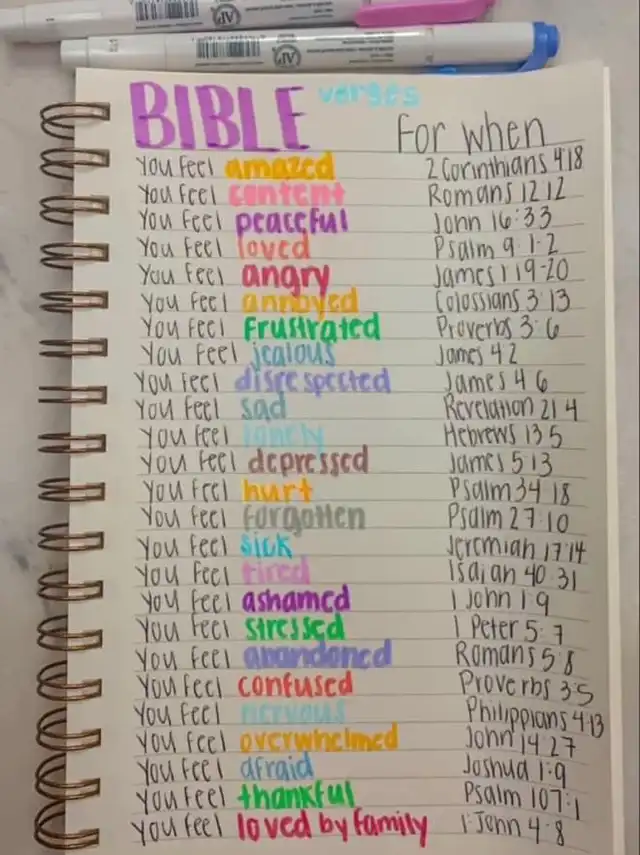 BIBLE verses
For when
You Feel amazed 2 Corinthians 4:18
You Feel content Romans 12 12
You Feel peaceful John 16:33
You Feel loved Psalm 9:1-2
You Feel angry James 1 19-20
You Feel annoyed Colossians 3:13
You Feel Frustrated Proverbs 3:6
You Feel jealous James 4 2
You Feel disrespected James 4 6
You Feel sad Revelation 21 4
You Feel lonely Hebrews 13 5
You Feel depressed James 5 13
You Feel hurt Psalm 34 18
You Feel forgotten Psalm 27:10
You Feel sick Jeremiah 17:14
You Feel tired Isaiah 40:31
You Feel ashamed 1 John 1:9
You Feel stressed 1 Peter 5:7
You Feel abandoned Romans 5:8
You Feel confused Proverbs 3:5
You Feel nervous Philippians 4:13
You Feel overwhelmed John 14:27
You Feel afraid Joshua 1:9
You Feel thankful Psalm 107:1
You Feel loved by family 1 John 4:8